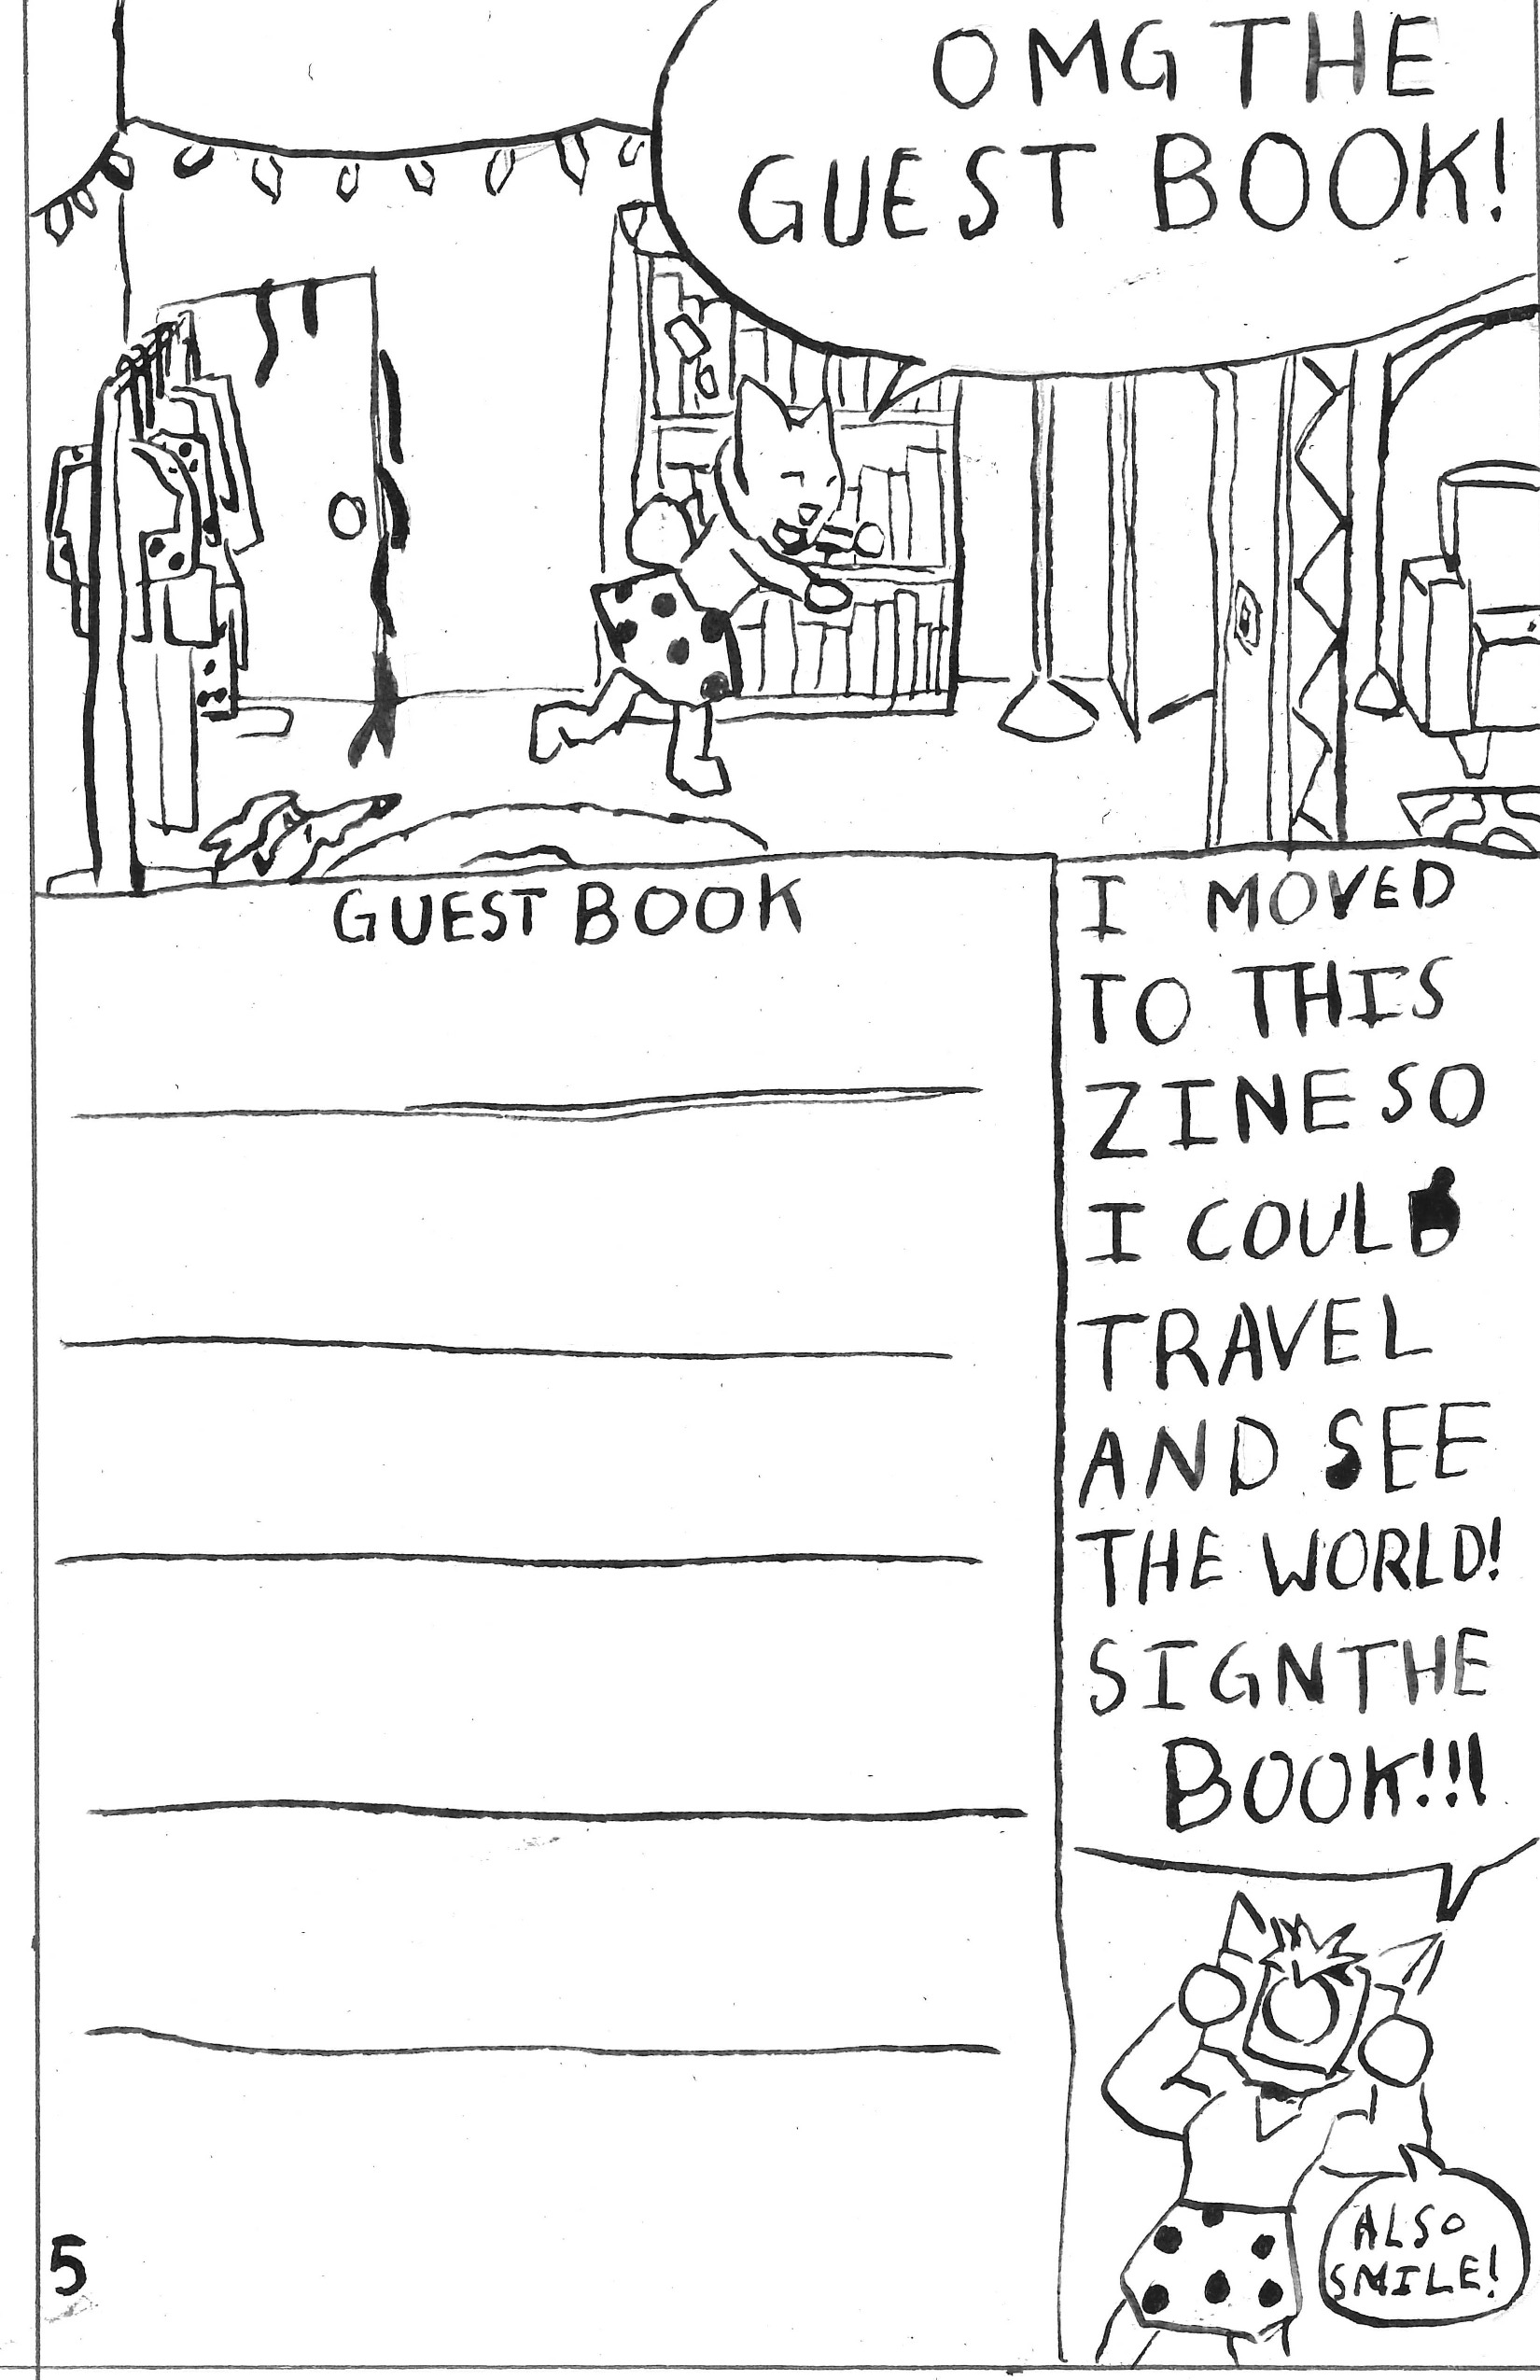 OMG THE
GUEST BOOK!
GUEST BOOK
I MOVED
TO THIS
ZINE SO
I COULD
TRAVEL
AND SEE
THE WORLD!
SIGN THE
BOOK!!!
ALSO
SMILE!
5